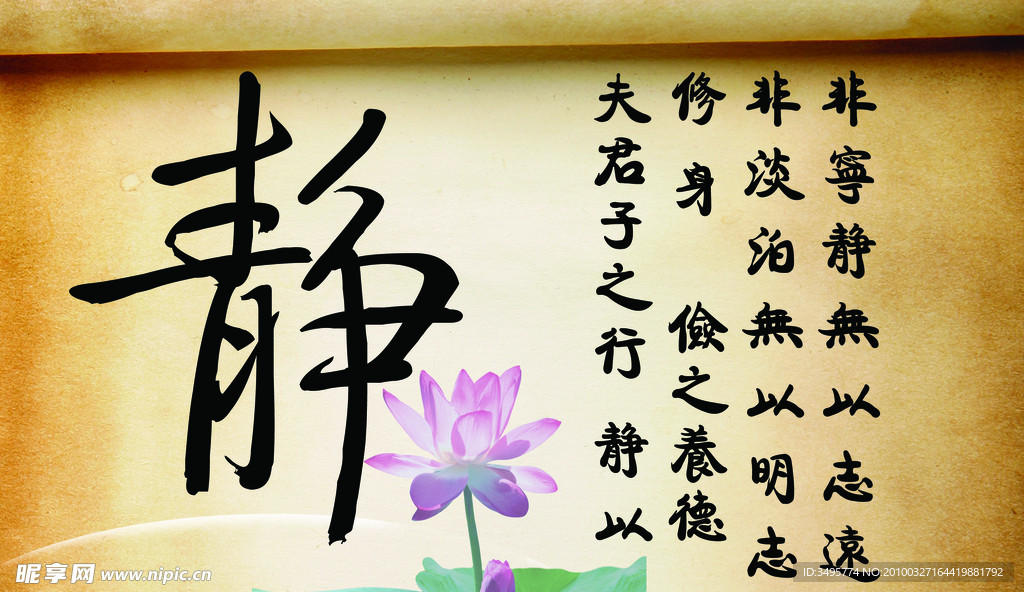 静
夫君子之行 静以
修身 儉之養德
非淡泊無以明志
非寧静無以志遠
昵享网 www.nipic.cn
ID:3495774 NO:20100327164419881792